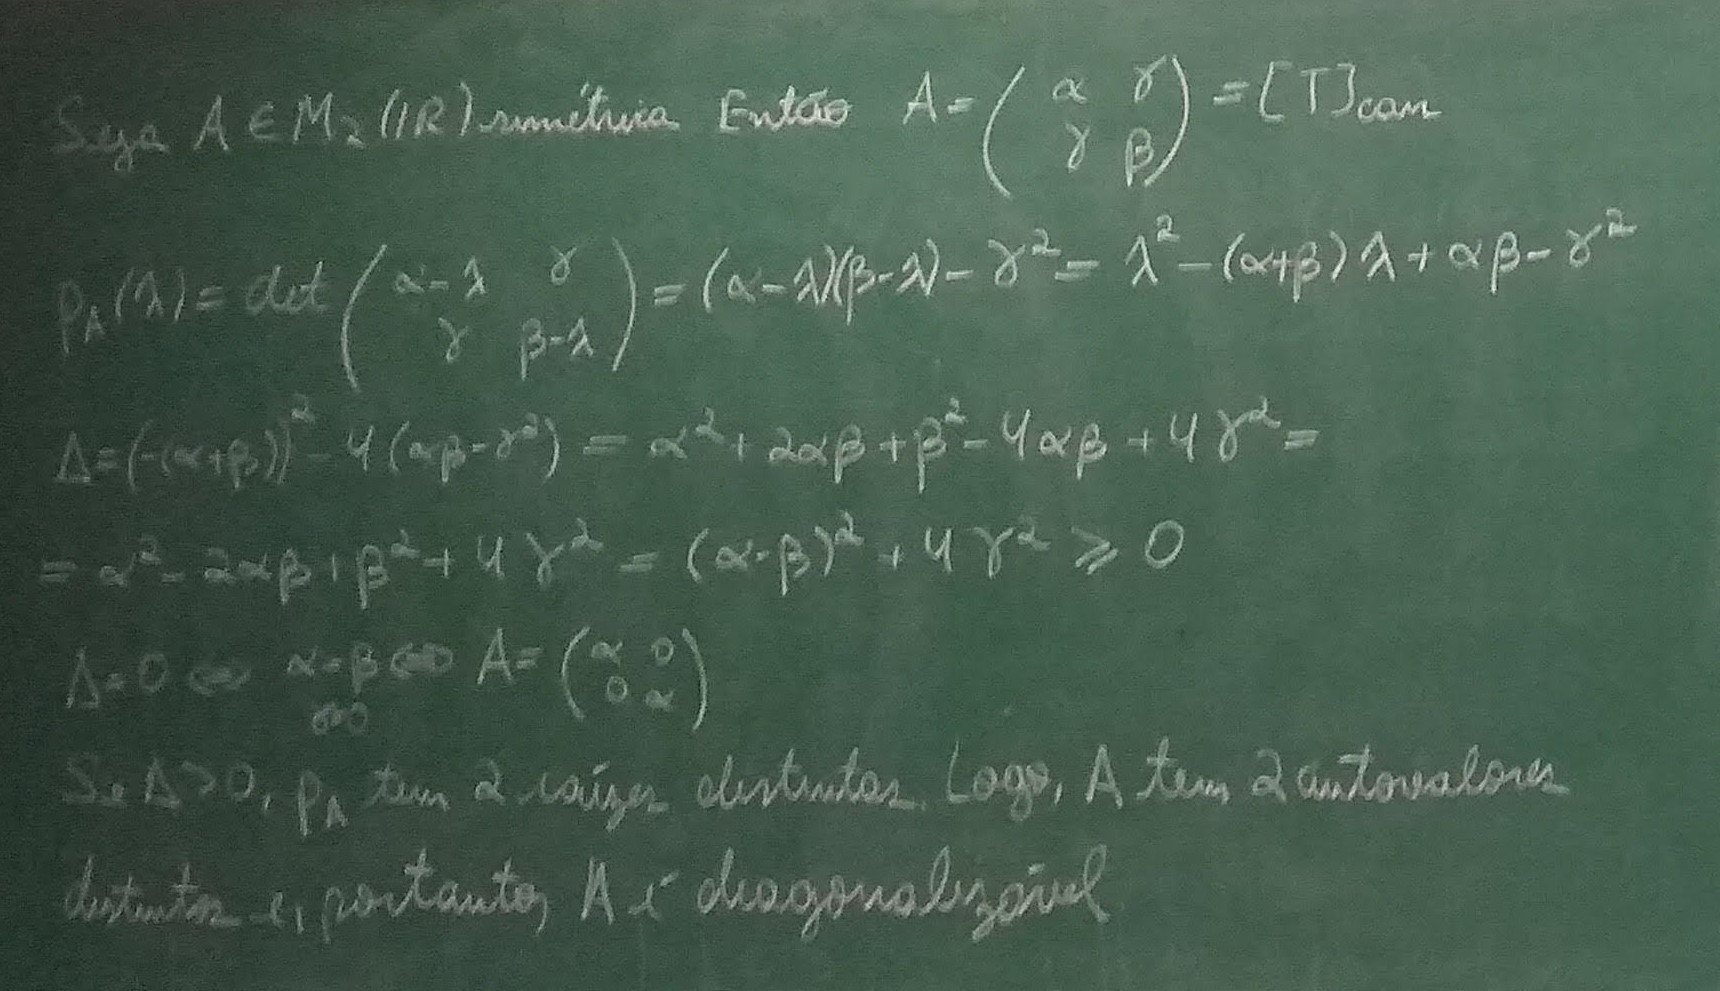 Seja A ∈ M₂(ℝ) simétrica Então A = ( α γ ; γ β ) = [T]can
p_A(λ) = det ( α-λ γ ; γ β-λ ) = (α-λ)(β-λ) - γ² = λ² - (α+β)λ + αβ - γ²
Δ = (-(α+β))² - 4(αβ-γ²) = α² + 2αβ + β² - 4αβ + 4γ² =
= α² - 2αβ + β² + 4γ² = (α-β)² + 4γ² ≥ 0
Δ=0 ⇔ α=β ⇔ A = ( α 0 ; 0 α )
Se Δ>0, p_A tem 2 raízes distintas. Logo, A tem 2 autovalores
distintos e, portanto, A é diagonalizável